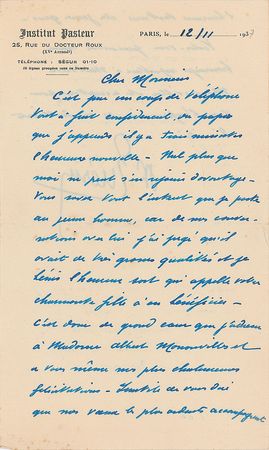 Institut Pasteur
25, Rue du Docteur Roux
(XVe Arrondt)
Téléphone : Ségur 01-10
PARIS, le 12/11 193
Cher Monsieur
C'est par un coup de téléphone
tout à fait confidentiel, du papa
que j'apprends il y a trois minutes
l'heureuse nouvelle - Nul plus que
moi ne peut s'en réjouir davantage -
Vous savez tout l'intérêt que je porte
au jeune homme, car de mes conver-
sations avec lui j'ai jugé qu'il
avait de très grandes qualités et je
bénis l'heureux sort qui appelle votre
charmante fille à en bénéficier -
C'est donc de grand cœur que j'adresse
à Madame Albert et
à vous même mes plus chaleureuses
félicitations - Inutile de vous dire
que nos vœux les plus ardents accompagnent